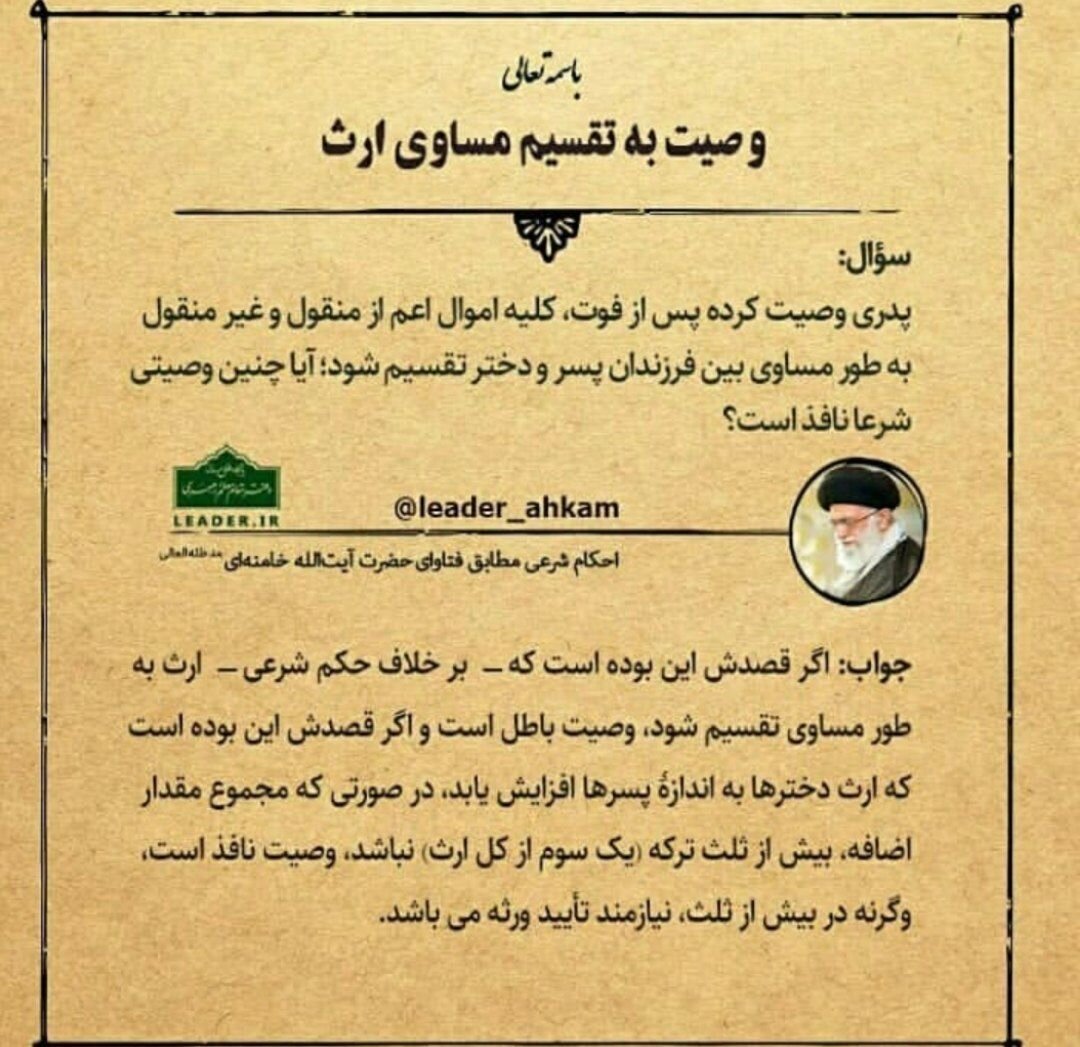 باسمه تعالی
وصیت به تقسیم مساوی ارث
سؤال:
پدری وصیت کرده پس از فوت، کلیه اموال اعم از منقول و غیر منقول
به طور مساوی بین فرزندان پسر و دختر تقسیم شود؛ آیا چنین وصیتی
شرعا نافذ است؟
@leader_ahkam
LEADER.IR
احکام شرعی مطابق فتاوای حضرت آیت‌الله خامنه‌ای مد ظله العالی
جواب: اگر قصدش این بوده است که ـ بر خلاف حکم شرعی ـ ارث به
طور مساوی تقسیم شود، وصیت باطل است و اگر قصدش این بوده است
که ارث دخترها به اندازهٔ پسرها افزایش یابد، در صورتی که مجموع مقدار
اضافه، بیش از ثلث ترکه (یک سوم از کل ارث) نباشد، وصیت نافذ است،
وگرنه در بیش از ثلث، نیازمند تأیید ورثه می باشد.